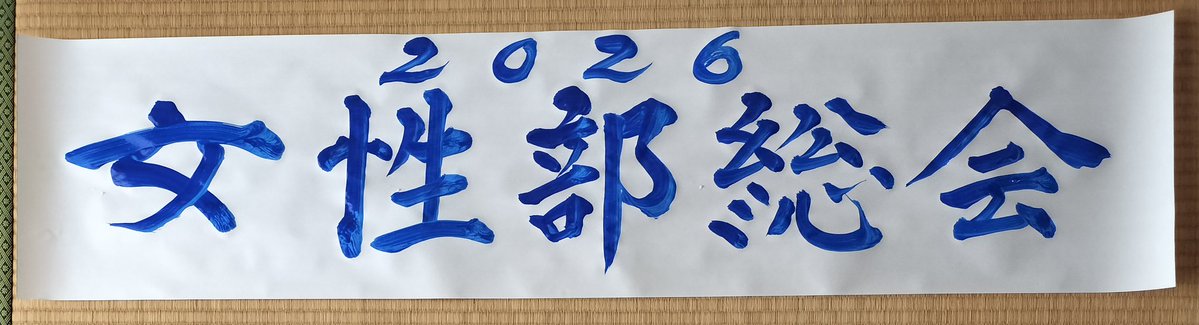 2026
女性部総会